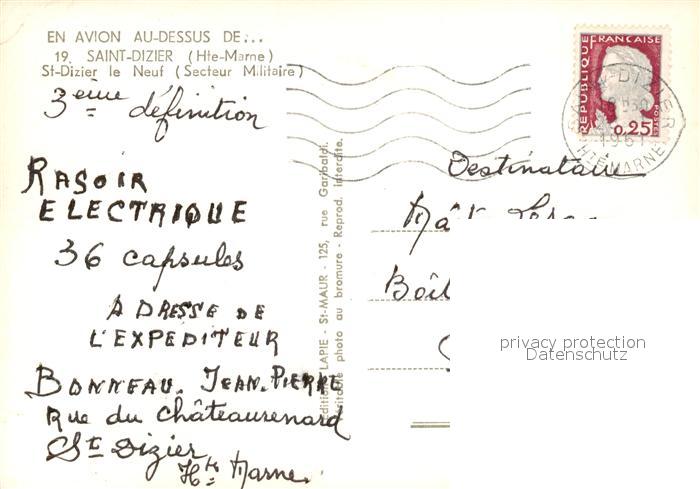 EN AVION AU-DESSUS DE...
19. SAINT-DIZIER (Hte-Marne)
St-Dizier le Neuf (Secteur Militaire)
3ème définition
RASOIR
ELECTRIQUE
36 capsules
ADRESSE DE
L'EXPEDITEUR
BONNEAU. JEAN. PIERRE
Rue du châteaurenard
St Dizier
Hte Marne.
LAPIE - St-MAUR - 125, rue Garibaldi.
photo au bromure - Reprod. Interdite.
REPUBLIQUE FRANÇAISE
0,25
1961
Hte MARNE
Destinataire
privacy protection
Datenschutz